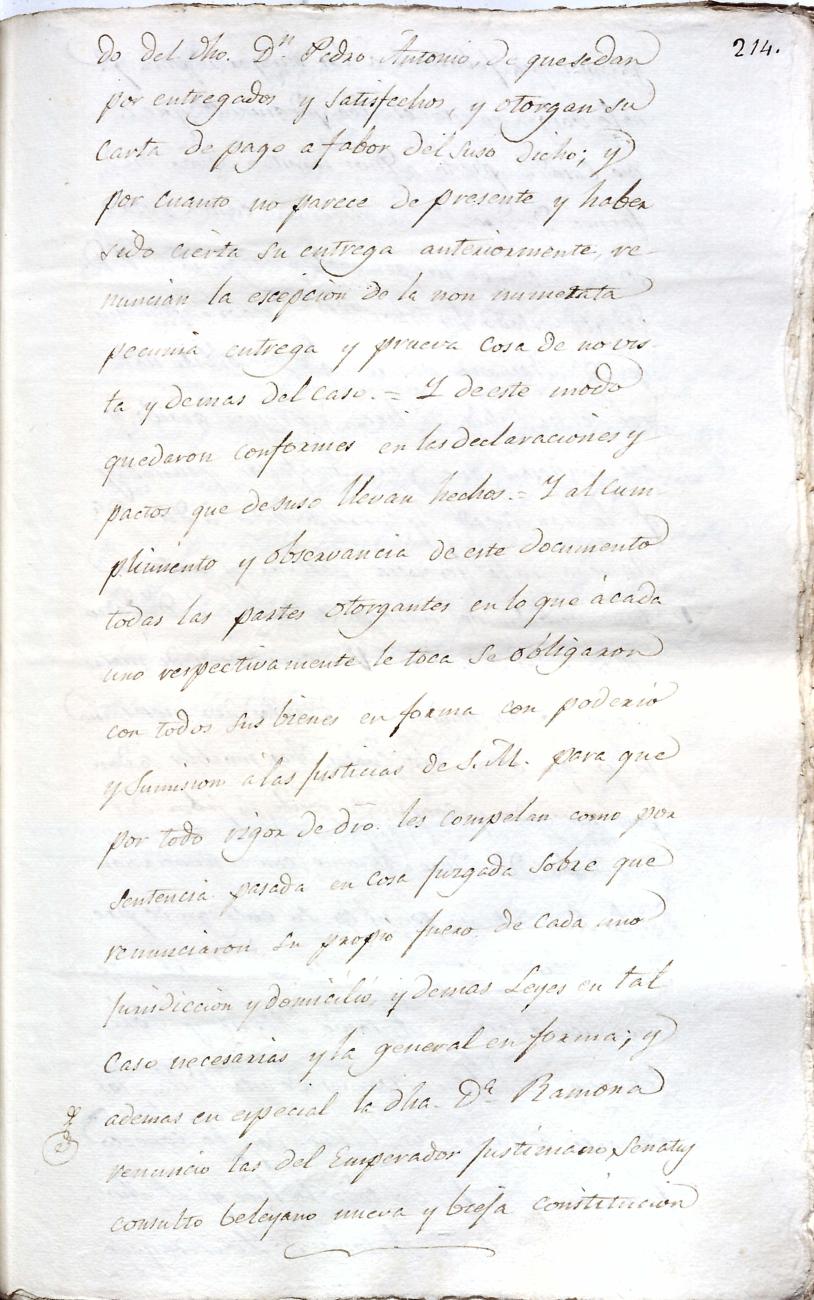 214.
do del dho. Dn. Pedro Antonio, de que se dan
por entregados y satisfechos, y otorgan su
Carta de pago a fabor del suso dicho; y
por cuanto no parece de presente y haber
sido cierta su entrega anteriormente, re-
nuncian la escepcion de la non numerata
pecunia entrega y prueva cosa de no vis-
ta y demas del caso. = Y de este modo
quedaron conformes en las declaraciones y
pactos que de suso llevan hechos. = Y al cum-
plimiento y observancia de este documento
todas las partes otorgantes en lo que à cada
uno respectivamente le toca se obligaron
con todos sus bienes en forma con poderio
y sumision a las Justicias de S. M. para que
por todo rigor de dro. les compelan como por
sentencia pasada en cosa Juzgada sobre que
renunciaron su propio fuero de cada uno
Jurisdiccion y domicilio, y demas Leyes en tal
Caso necesarias y la general en forma; y
ademas en especial la dha. Da. Ramona
renunció las del Emperador Justiniano Senatus
consulto beleyano nueva y bieja constitucion